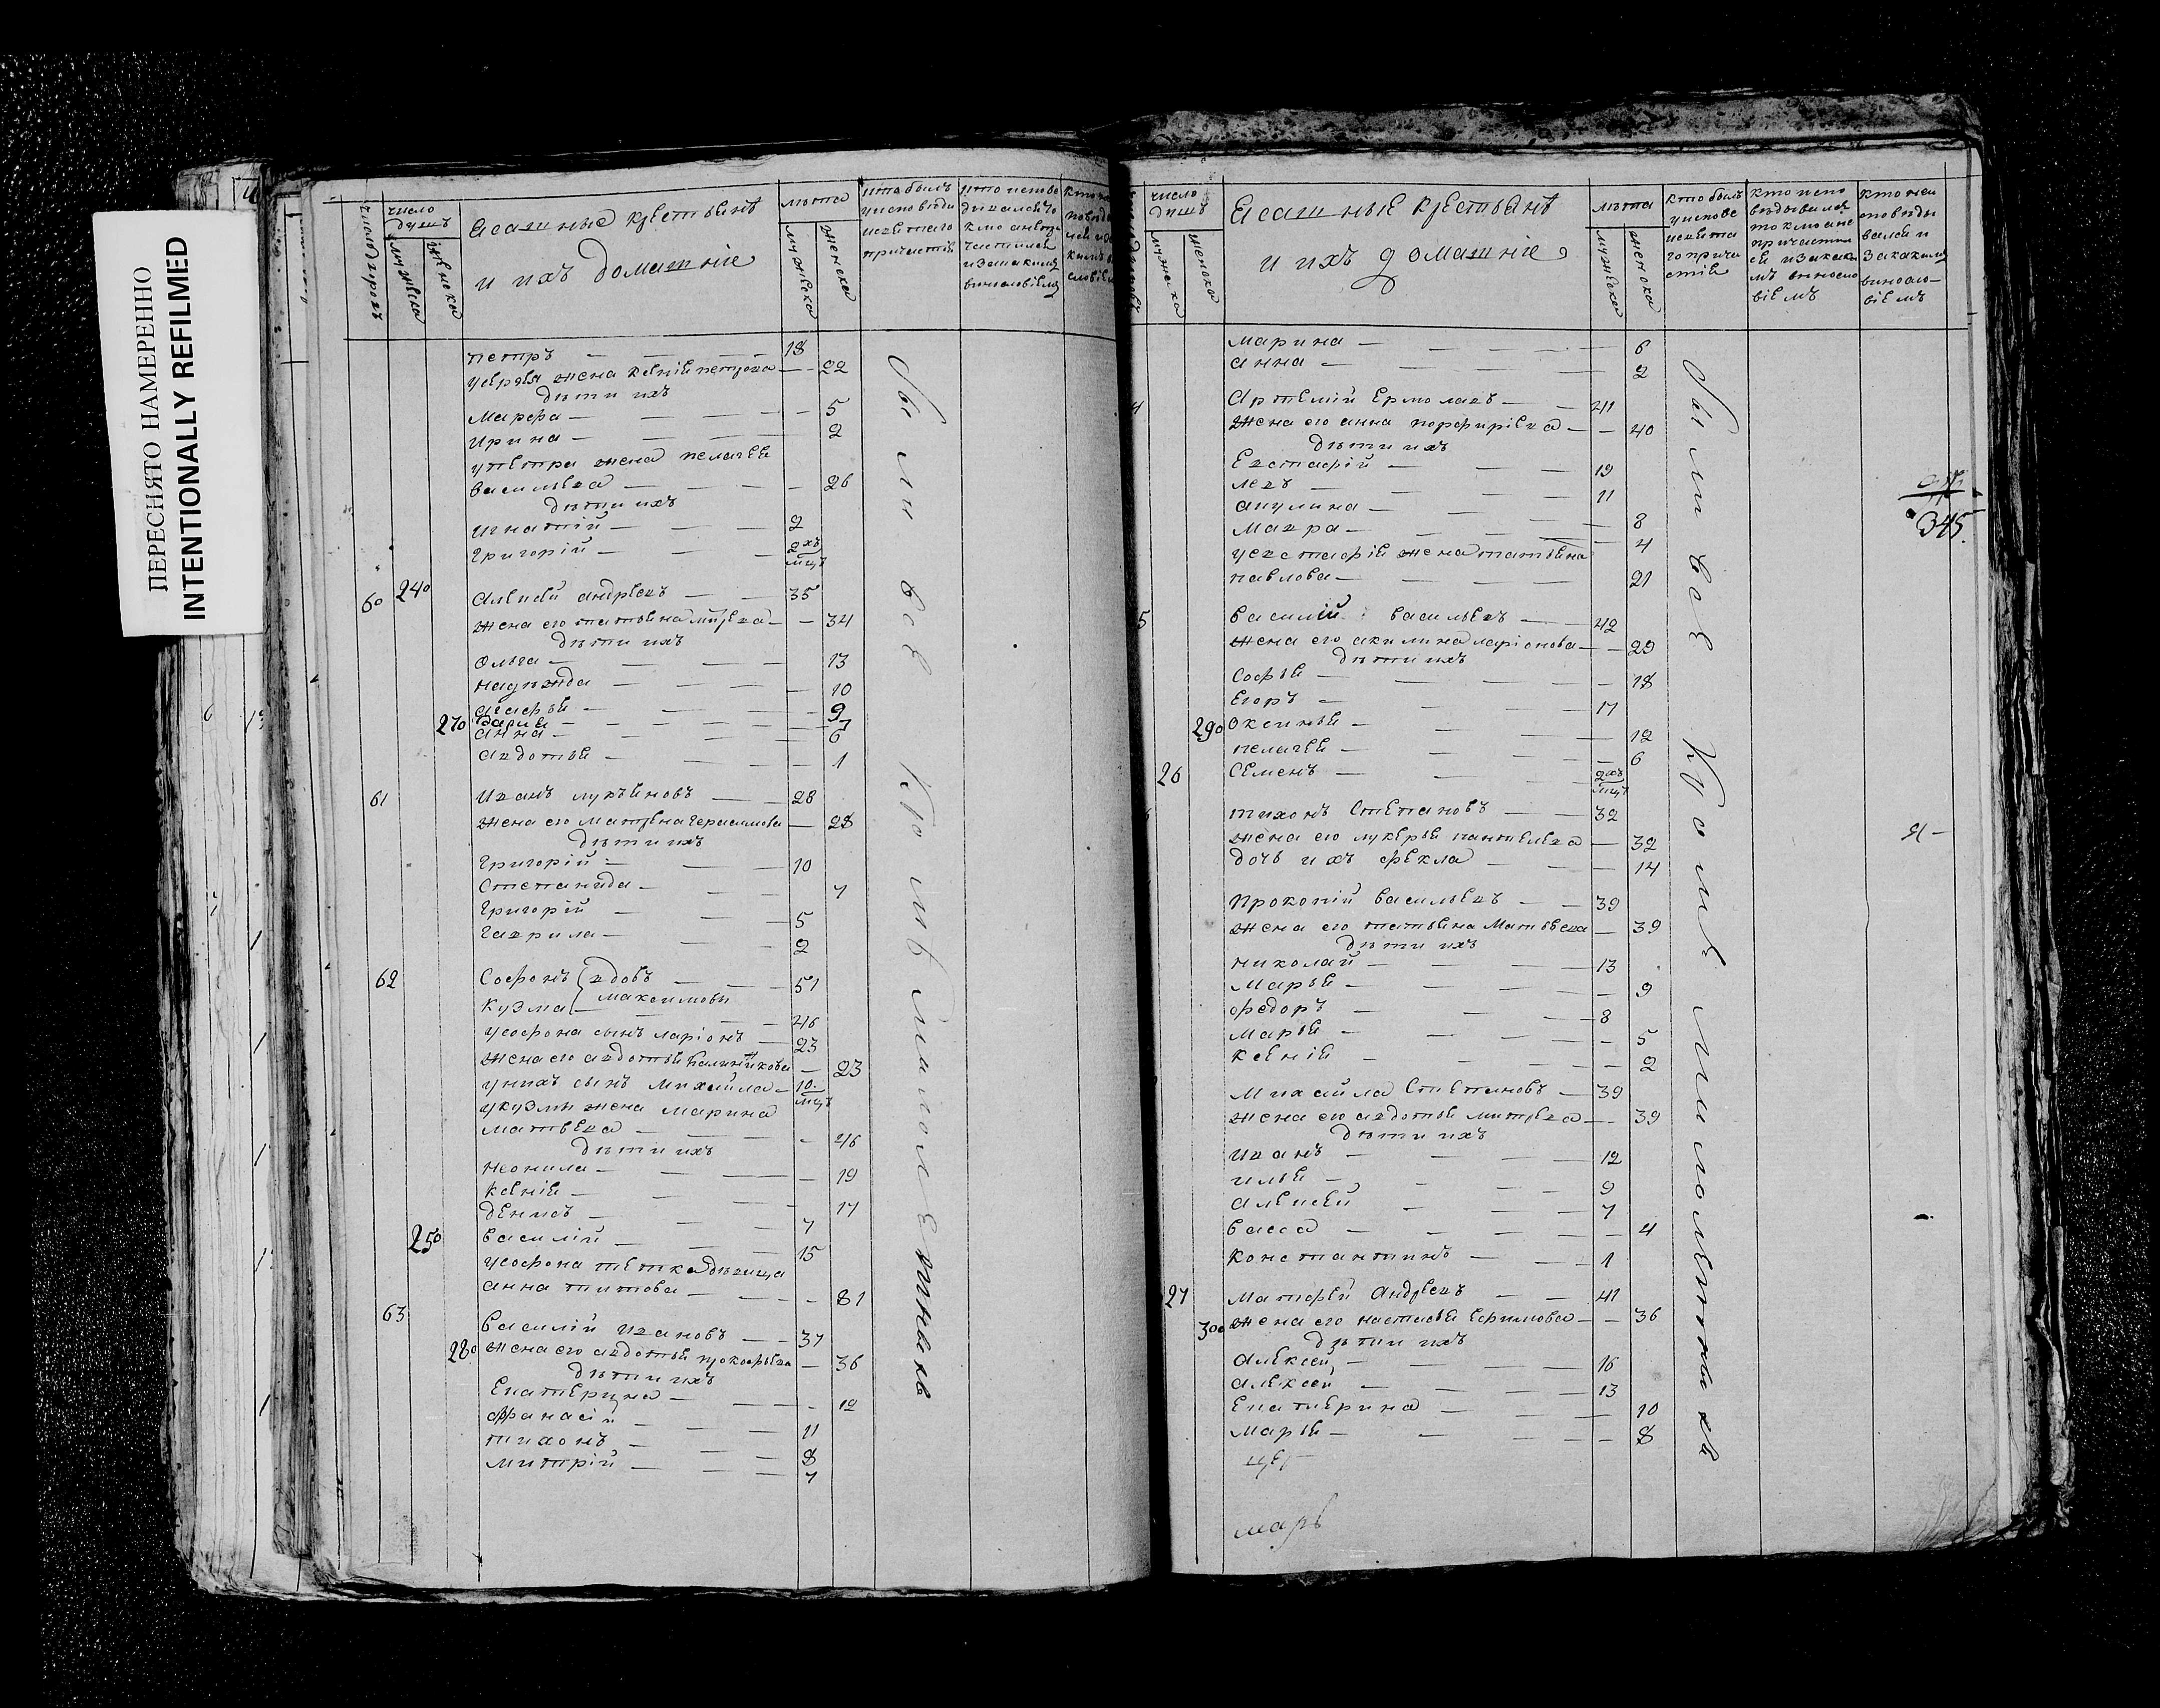 ПЕРЕСНЯТО НАМЕРЕННО
INTENTIONALLY REFILMED
число дворовъ
число душъ
мужеска
женска
Ясашные крестьянѣ
и ихъ домашніе
лѣта
мужеска
женска
кто былъ
у исповѣди
и святаго
причастія
Петръ — 18
жена Ксенія Петрова — 22
дѣти ихъ
Марфа — 5
Ирина — 2
у Петра жена Пелагея
Васильева — 26
дѣти ихъ
Игнатій — 2
Григорій — 2хъ мцъ
60 240 Алексѣй Андрѣевъ — 35
жена его Татьяна — 34
дѣти ихъ
Ольга — 13
Надѣжда — 10
Агафья — 9
270 Дарья — 7
Анна — 6
Авдотья — 1
61 Иванъ Лукьяновъ — 28
жена его Матрена Герасимова — 28
дѣти ихъ
Григорій — 10
Степанида — 7
Григорій — 5
Гаврила — 2
62 Софонъ вдовъ — 51
Кузма Максимовы — 46
у Софона сынъ Ларіонъ — 23
жена его Авдотья Калинникова — 23
у нихъ сынъ Михайла — 10 мцъ
у Кузмы жена Марина
Матвѣева — 46
дѣти ихъ
Неонила — 19
Ксенія — 17
Денисъ — 7
250 Василій — 15
у Софона тетка дѣвица
Анна Титова — 81
63 Василій Ивановъ — 37
280 жена его Авдотья Прокофьева — 36
дѣти ихъ
Екатерина — 12
Афанасій — 11
Тихонъ — 8
Митрій — 7
Были всѣ кромѣ малолѣтныхъ
число душъ
мужеска
женска
Ясашные крестьянѣ
и ихъ домашніе
лѣта
мужеска
женска
кто былъ
у исповѣ
и свята
го прича
стія
кто испо
вѣдывался
токмо не
причастил
ся и за каки
мъ виносло
віемъ
кто неи
сповѣды
вался и
за какимъ
винсло—
віемъ
Марина — 6
Анна — 2
Артемій Ермолаевъ — 41
жена его Анна Порфирьева — 40
дѣти ихъ
Евстафій — 19
Левъ — 11
Акулина — 8
Мавра — 4
у Евстафія жена Татьяна
Павлова — 21
Василій Васильевъ — 42
жена его Акилина Ларіонова — 29
дѣти ихъ
Софья — 18
Егоръ — 17
290 Оксинья — 12
Пелагея — 6
26 Семенъ — 2хъ мцъ
Тихонъ Степановъ — 32
жена его Лукерья Пантелева — 32
дочь ихъ Фекла — 14
Прокопій Васильевъ — 39
жена его Татьяна Матвѣева — 39
дѣти ихъ
Николай — 13
Марья — 9
Федоръ — 8
Марья — 5
Ксенія — 2
Михайла Степановъ — 39
жена его Авдотья Митрева — 39
дѣти ихъ
Иванъ — 12
Илья — 9
Алексѣй — 7
Васса — 4
Константинъ — 1
27 Матфѣй Андрѣевъ — 41
300 жена его Настасья Ефимова — 36
дѣти ихъ
Алексѣй — 16
Алексѣй — 13
Екатерина — 10
Марья — 8
марь
Были всѣ кромѣ малолѣтныхъ
345.